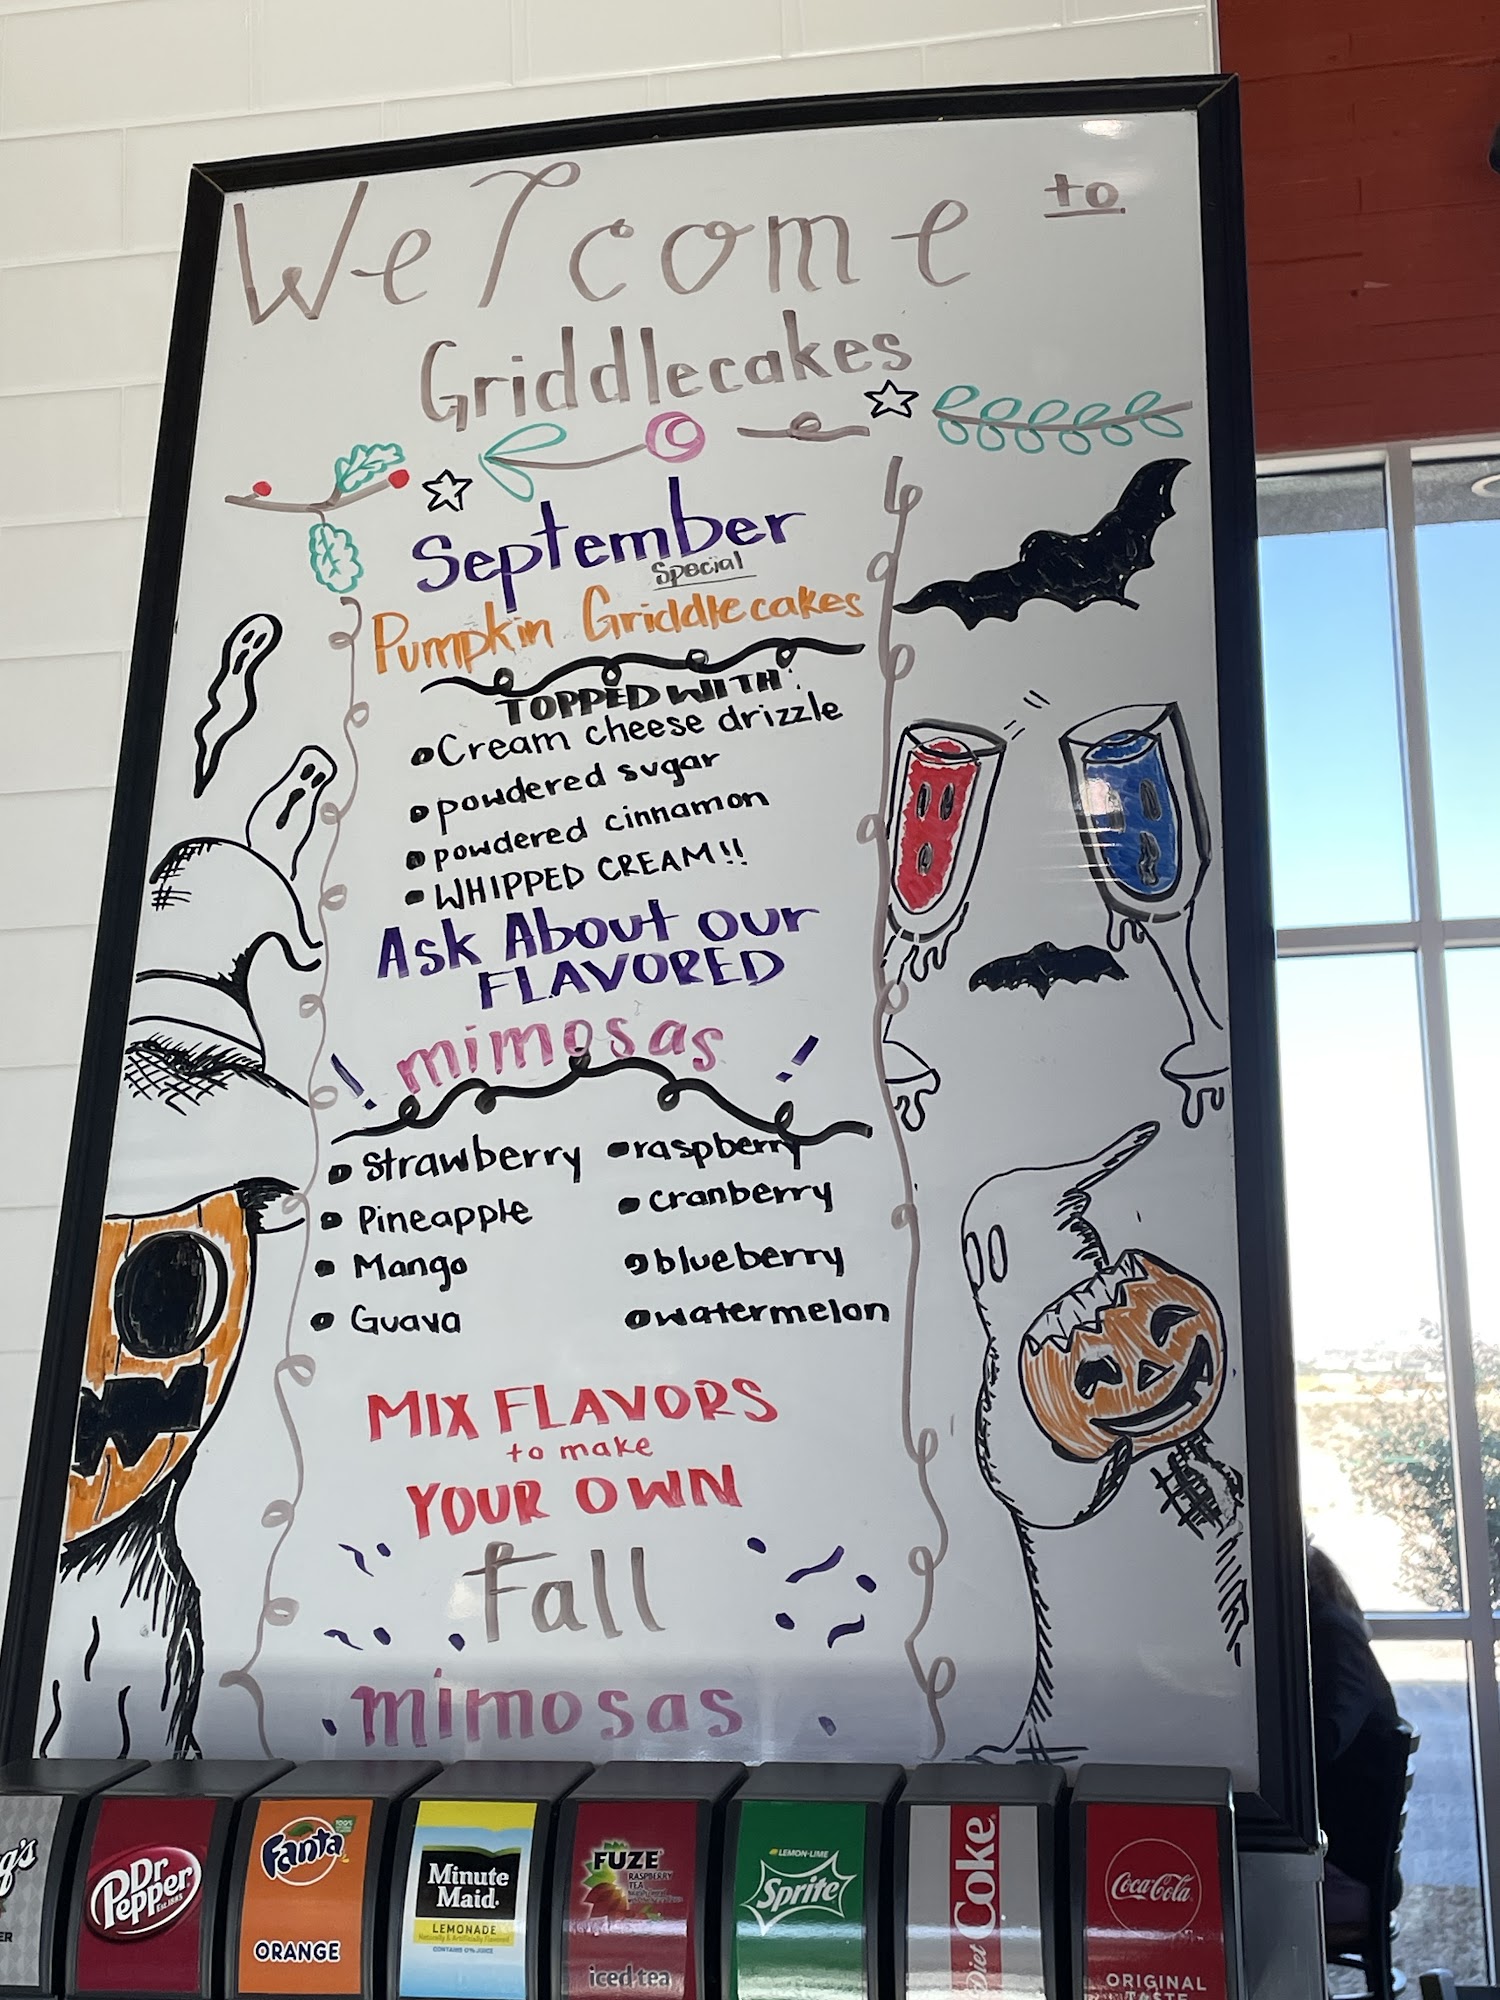 Welcome to
Griddlecakes
September
Special
Pumpkin Griddlecakes
TOPPED WITH:
Cream cheese drizzle
powdered sugar
powdered cinnamon
WHIPPED CREAM!!
Ask About our
FLAVORED
mimosas
Strawberry
Pineapple
Mango
Guava
raspberry
cranberry
blueberry
watermelon
MIX FLAVORS
to make
YOUR OWN
Fall
mimosas
Dr Pepper
Fanta
ORANGE
Minute
Maid
LEMONADE
FUZE
RASPBERRY
TEA
iced tea
LEMON-LIME
Sprite
Diet Coke
Coca-Cola
ORIGINAL
TASTE